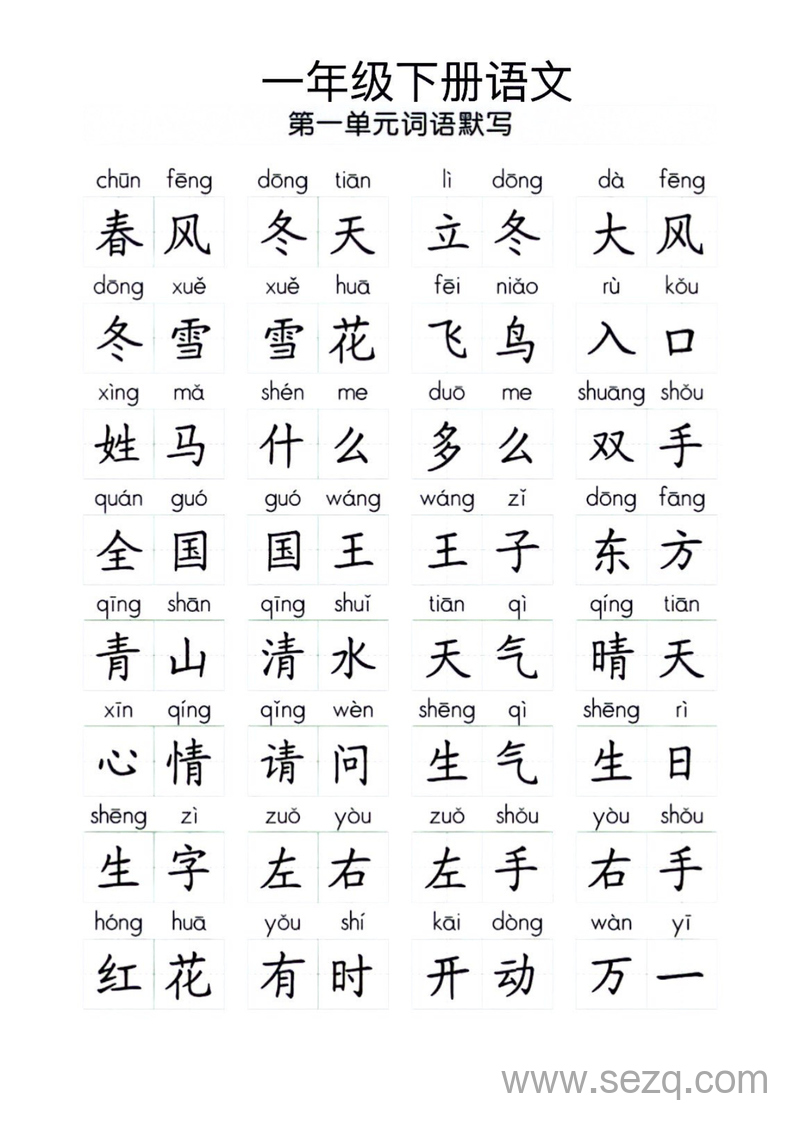 一年级下册语文
第一单元词语默写
chūn fēng dōng tiān lì dōng dà fēng
春风 冬天 立冬 大风
dōng xuě xuě huā fēi niǎo rù kǒu
冬雪 雪花 飞鸟 入口
xìng mǎ shén me duō me shuāng shǒu
姓马 什么 多么 双手
quán guó guó wáng wáng zǐ dōng fāng
全国 国王 王子 东方
qīng shān qīng shuǐ tiān qì qíng tiān
青山 清水 天气 晴天
xīn qíng qǐng wèn shēng qì shēng rì
心情 请问 生气 生日
shēng zì zuǒ yòu zuǒ shǒu yòu shǒu
生字 左右 左手 右手
hóng huā yǒu shí kāi dòng wàn yī
红花 有时 开动 万一
www.sezq.com